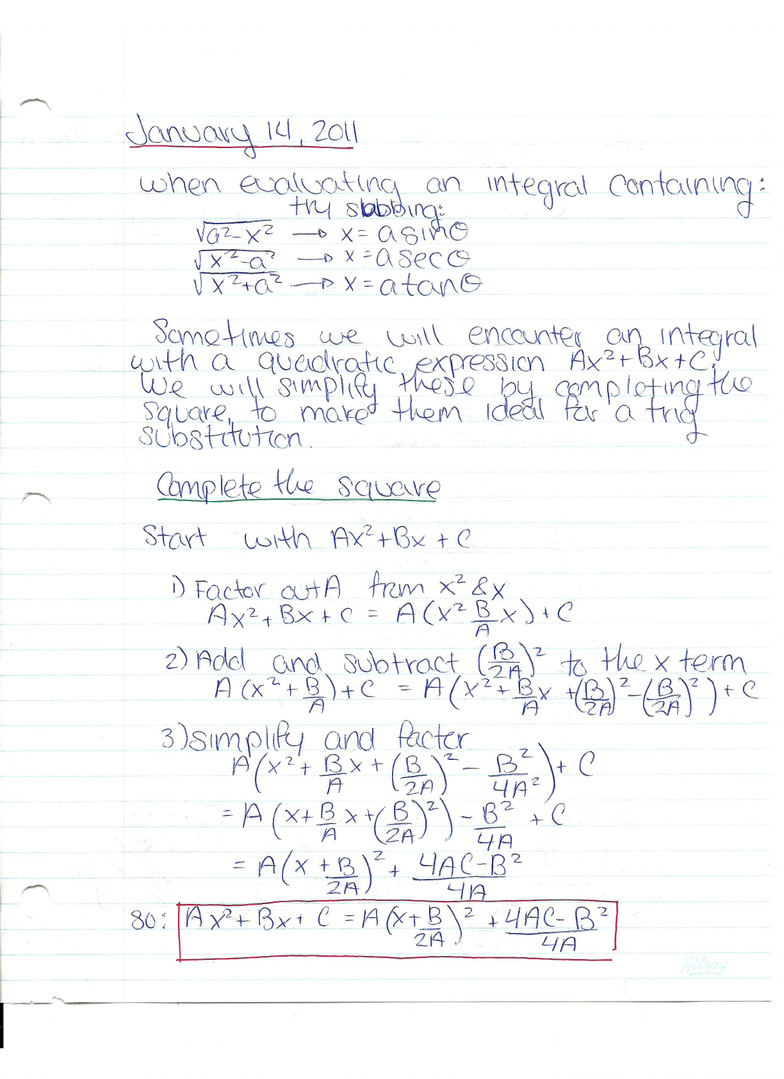 January 14, 2011
when evaluating an integral containing:
try subbing:
√a²-x² → x = a sinθ
√x²-a² → x = a secθ
√x²+a² → x = a tanθ
Sometimes we will encounter an integral
with a quadratic expression Ax²+Bx+C.
We will simplify these by completing the
square, to make them ideal for a trig
substitution.
Complete the square
Start with Ax²+Bx+C
1) Factor out A from x² & x
Ax²+Bx+C = A(x² B/A x)+C
2) Add and subtract (B/2A)² to the x term
A(x²+B/A)+C = A(x²+B/A x +(B/2A)²-(B/2A)²)+C
3) simplify and factor
A(x²+B/A x+(B/2A)²-B²/4A²)+C
=A(x+B/A x+(B/2A)²)-B²/4A+C
=A(x+B/2A)²+4AC-B²/4A
So: Ax²+Bx+C=A(x+B/2A)²+4AC-B²/4A
Hilroy